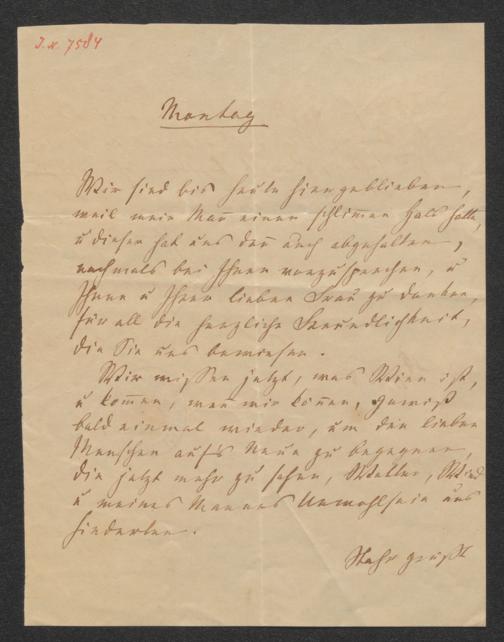 J. N. 7584
Montag
Wir sind bis heute hiergeblieben,
weil mein Mañ einen schlim̄en Hals hatte,
u dieser hat uns deñ auch abgehalten,
nochmals bei Ihnen vorzusprechen, u
Ihnen u Ihrer lieben Frau zu danken,
für all die herzliche Freundlichkeit,
die Sie uns bewiesen.
Wir wissen jetzt, was Wien ist,
u kom̄en, weñ wir köñen, gewiß
bald einmal wieder, um den lieben
Menschen auf's Neue zu begegnen,
die jetzt mehr zu sehen, Wetter, Wind
u meines Mannes Unwohlsein uns
hinderten.
Stahr grüßt